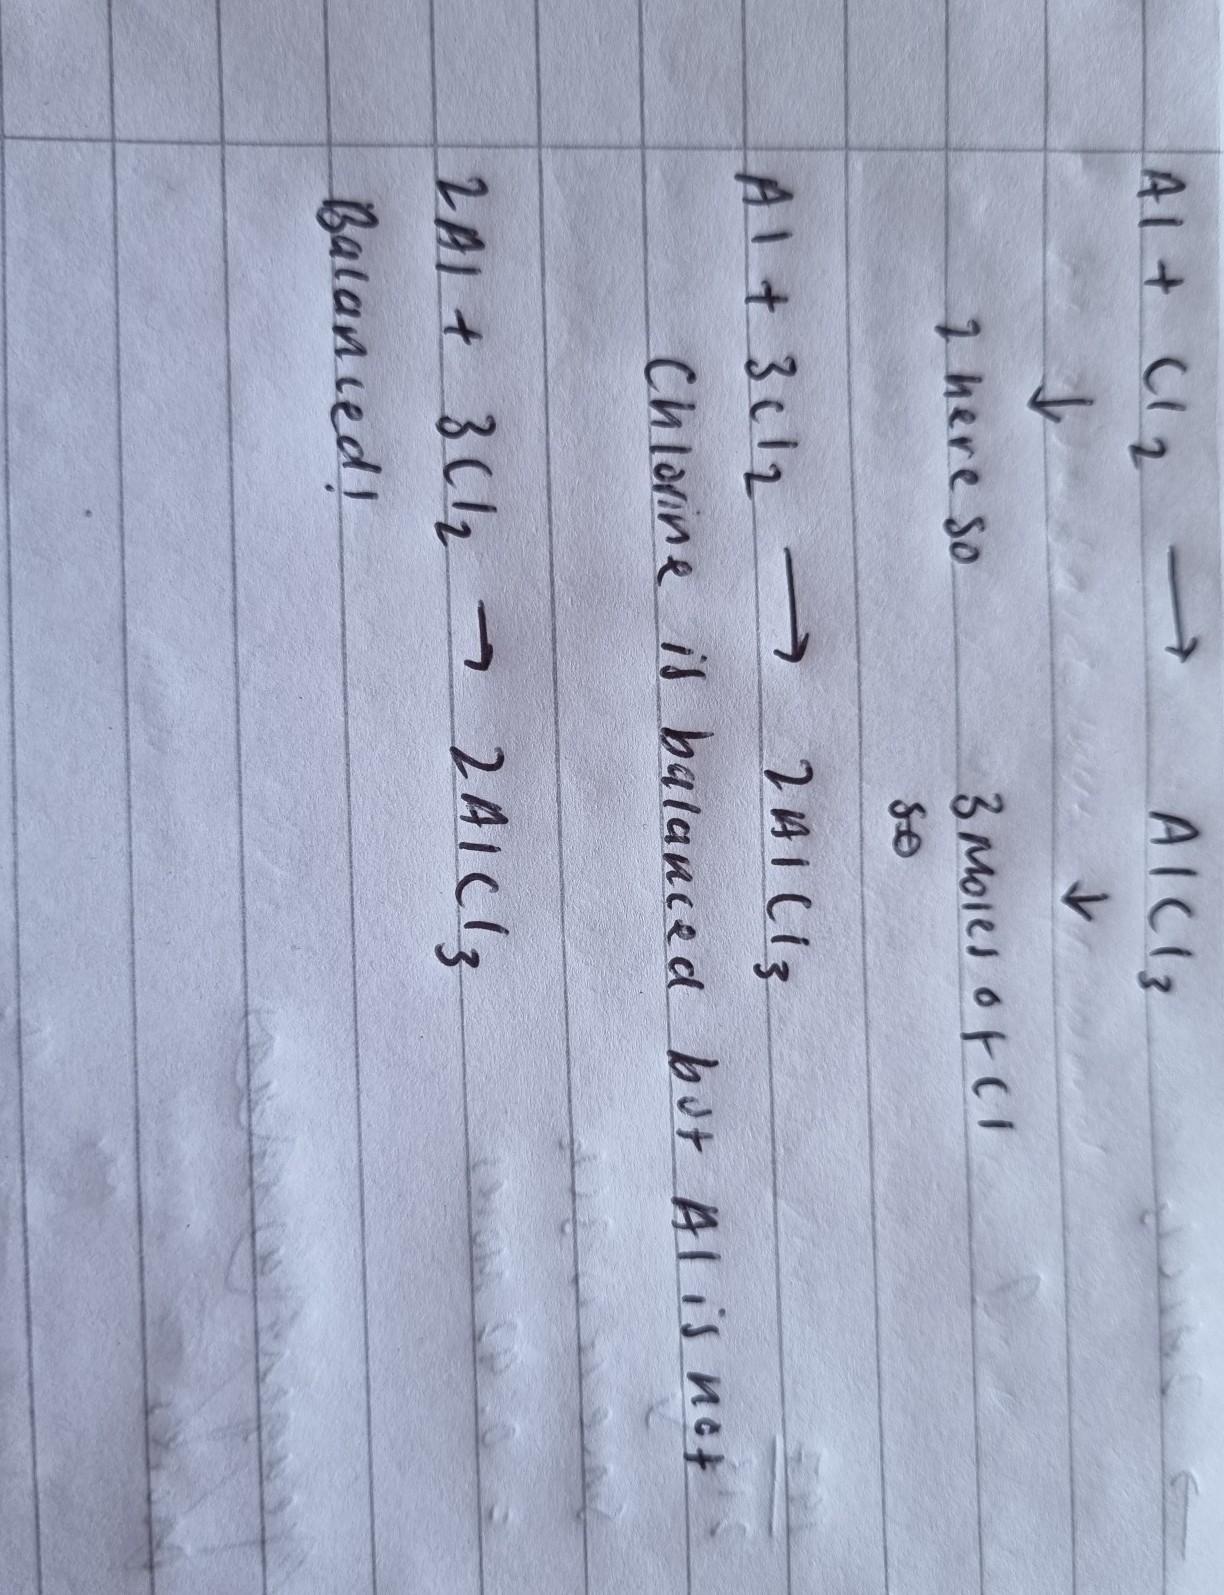 Al + Cl₂ → AlCl₃
↓ ↓
2 here so 3 moles of Cl
so
Al + 3Cl₂ → 2AlCl₃
Chlorine is balanced but Al is not
2Al + 3Cl₂ → 2AlCl₃
Balanced!